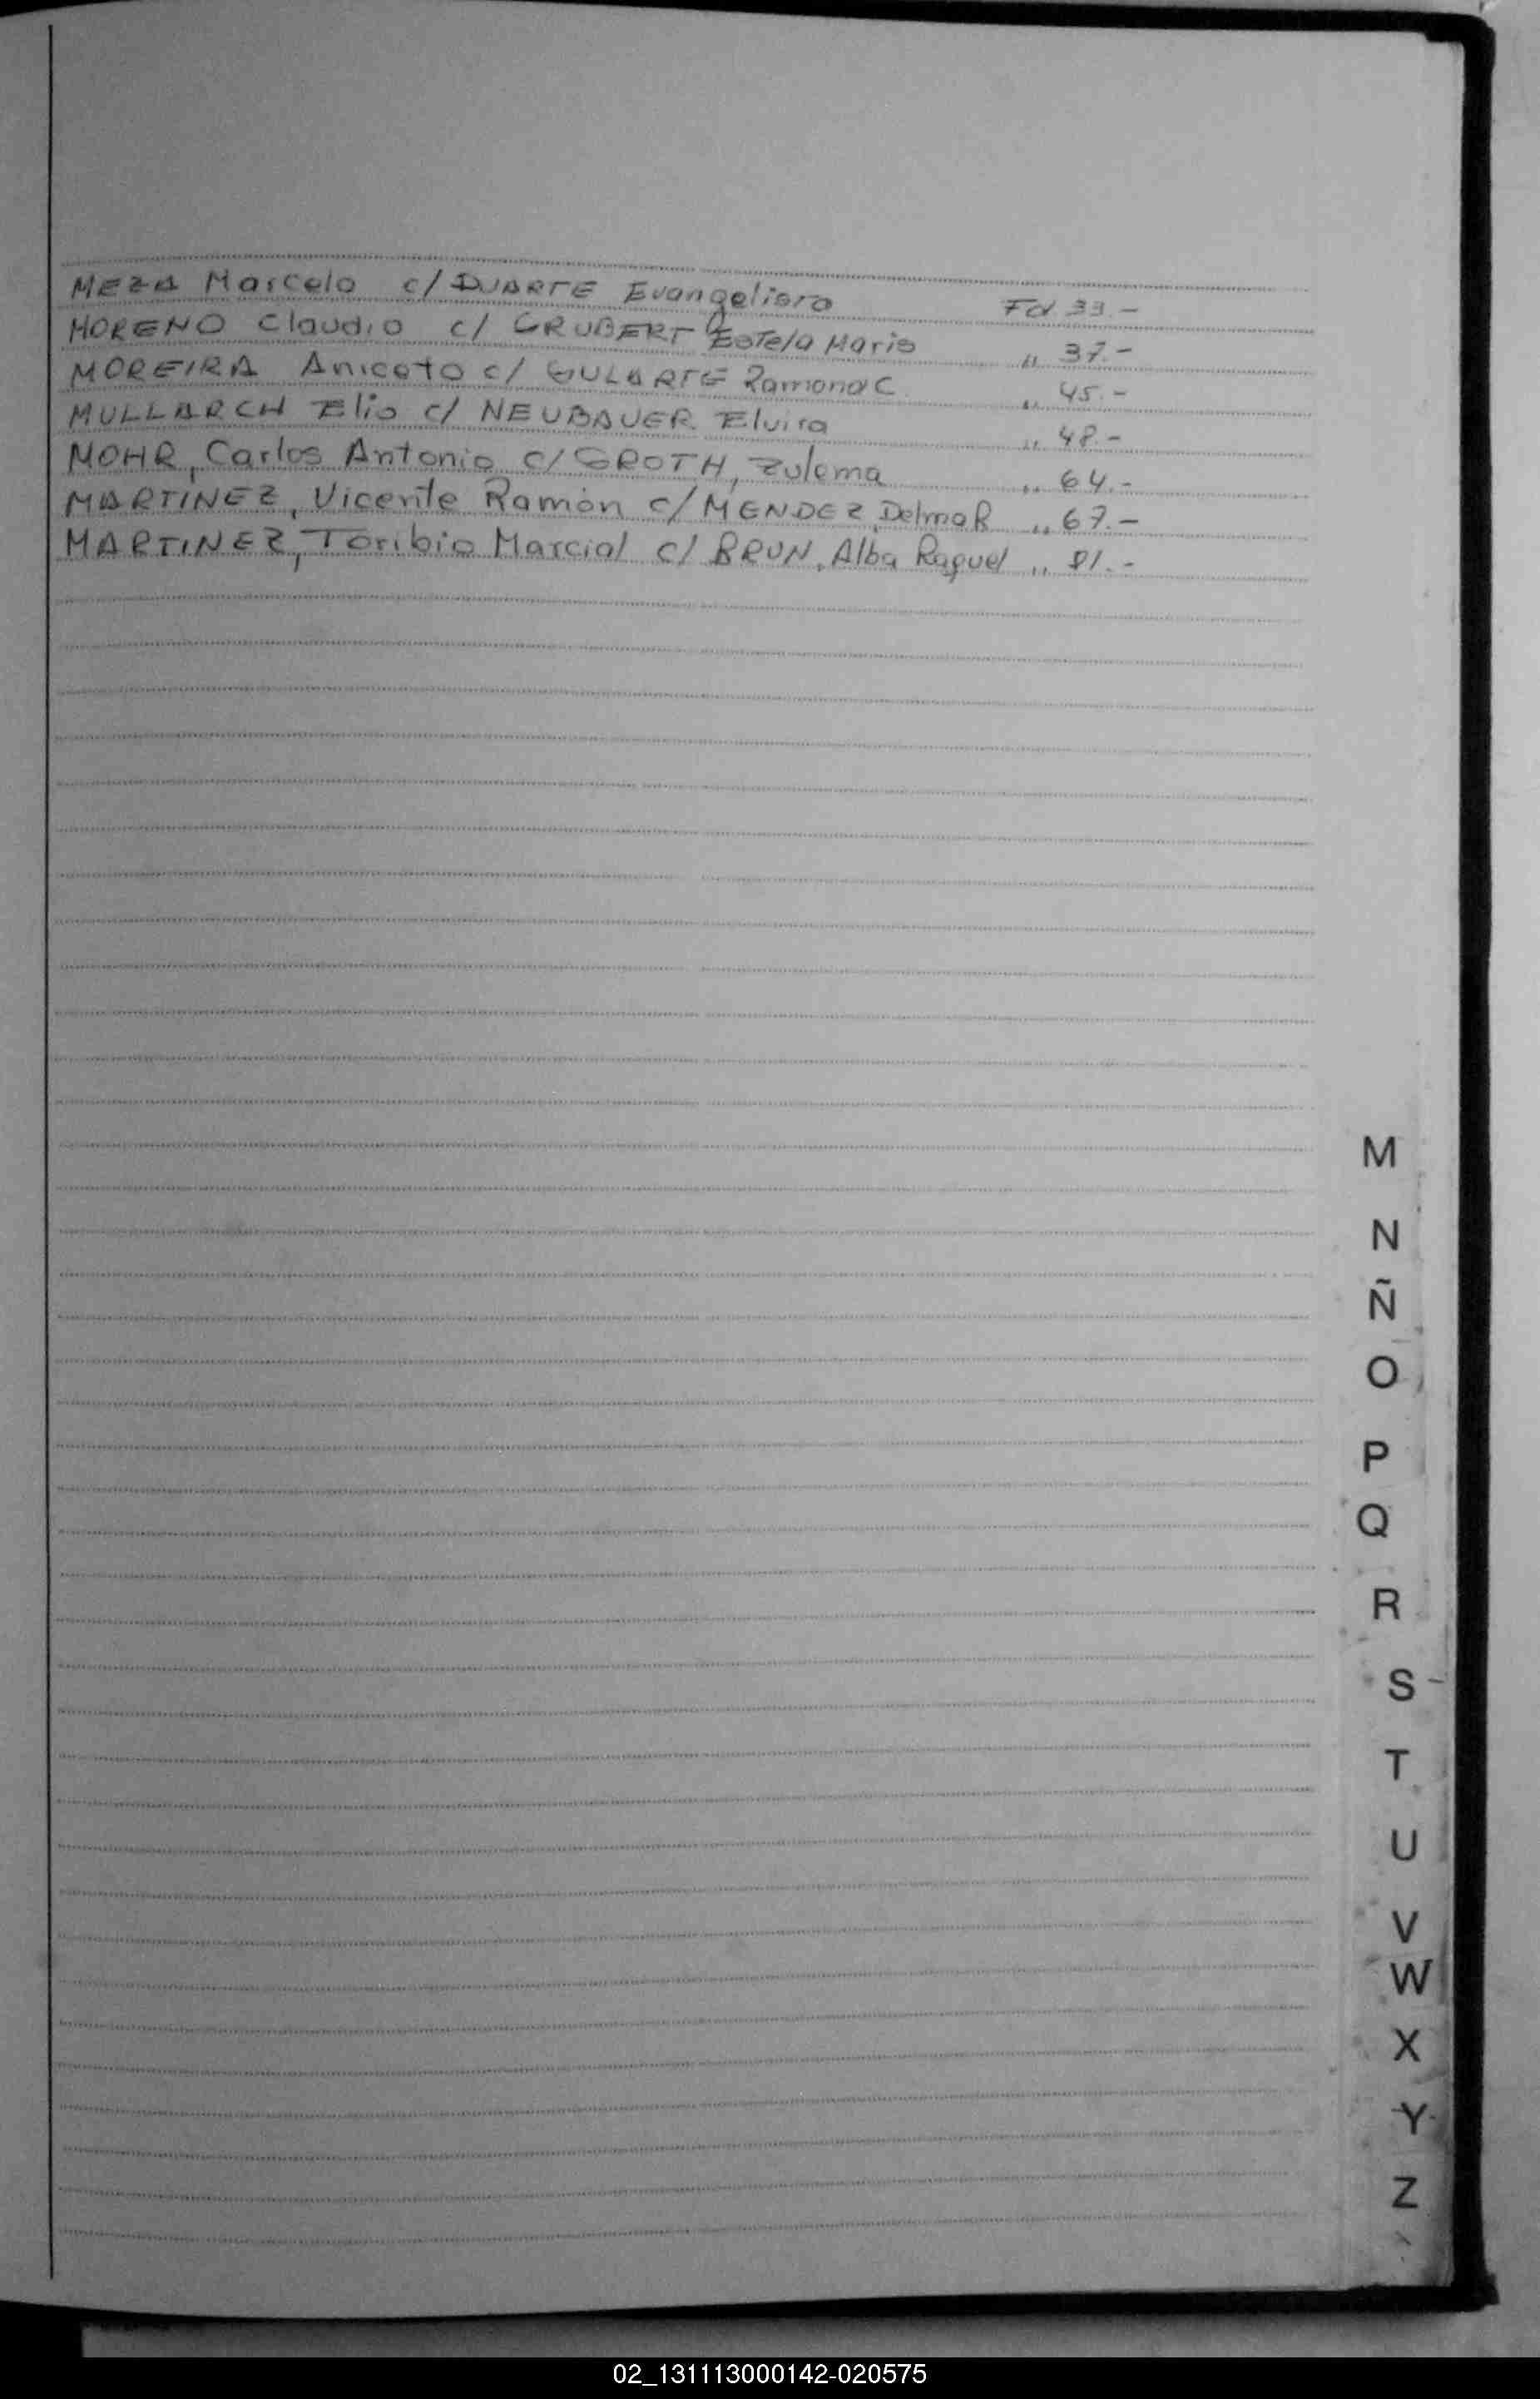 MEZA Marcelo c/ DUARTE Evangelista Fol 33.-
MORENO Claudio c/ GRUBERT Estela Maris " 37.-
MOREIRA Aniceto c/ GULARTE Ramona C " 45.-
MULLARCH Elio c/ NEUBAUER Elvira " 48.-
MOHR, Carlos Antonio c/ GROTH, Zulema " 64.-
MARTINEZ, Vicente Ramón c/ MENDEZ, Delma R " 67.-
MARTINEZ, Toribio Marcial c/ BRUN, Alba Raquel " 81.-
M
N
Ñ
O
P
Q
R
S
T
U
V
W
X
Y
Z
02_131113000142-020575